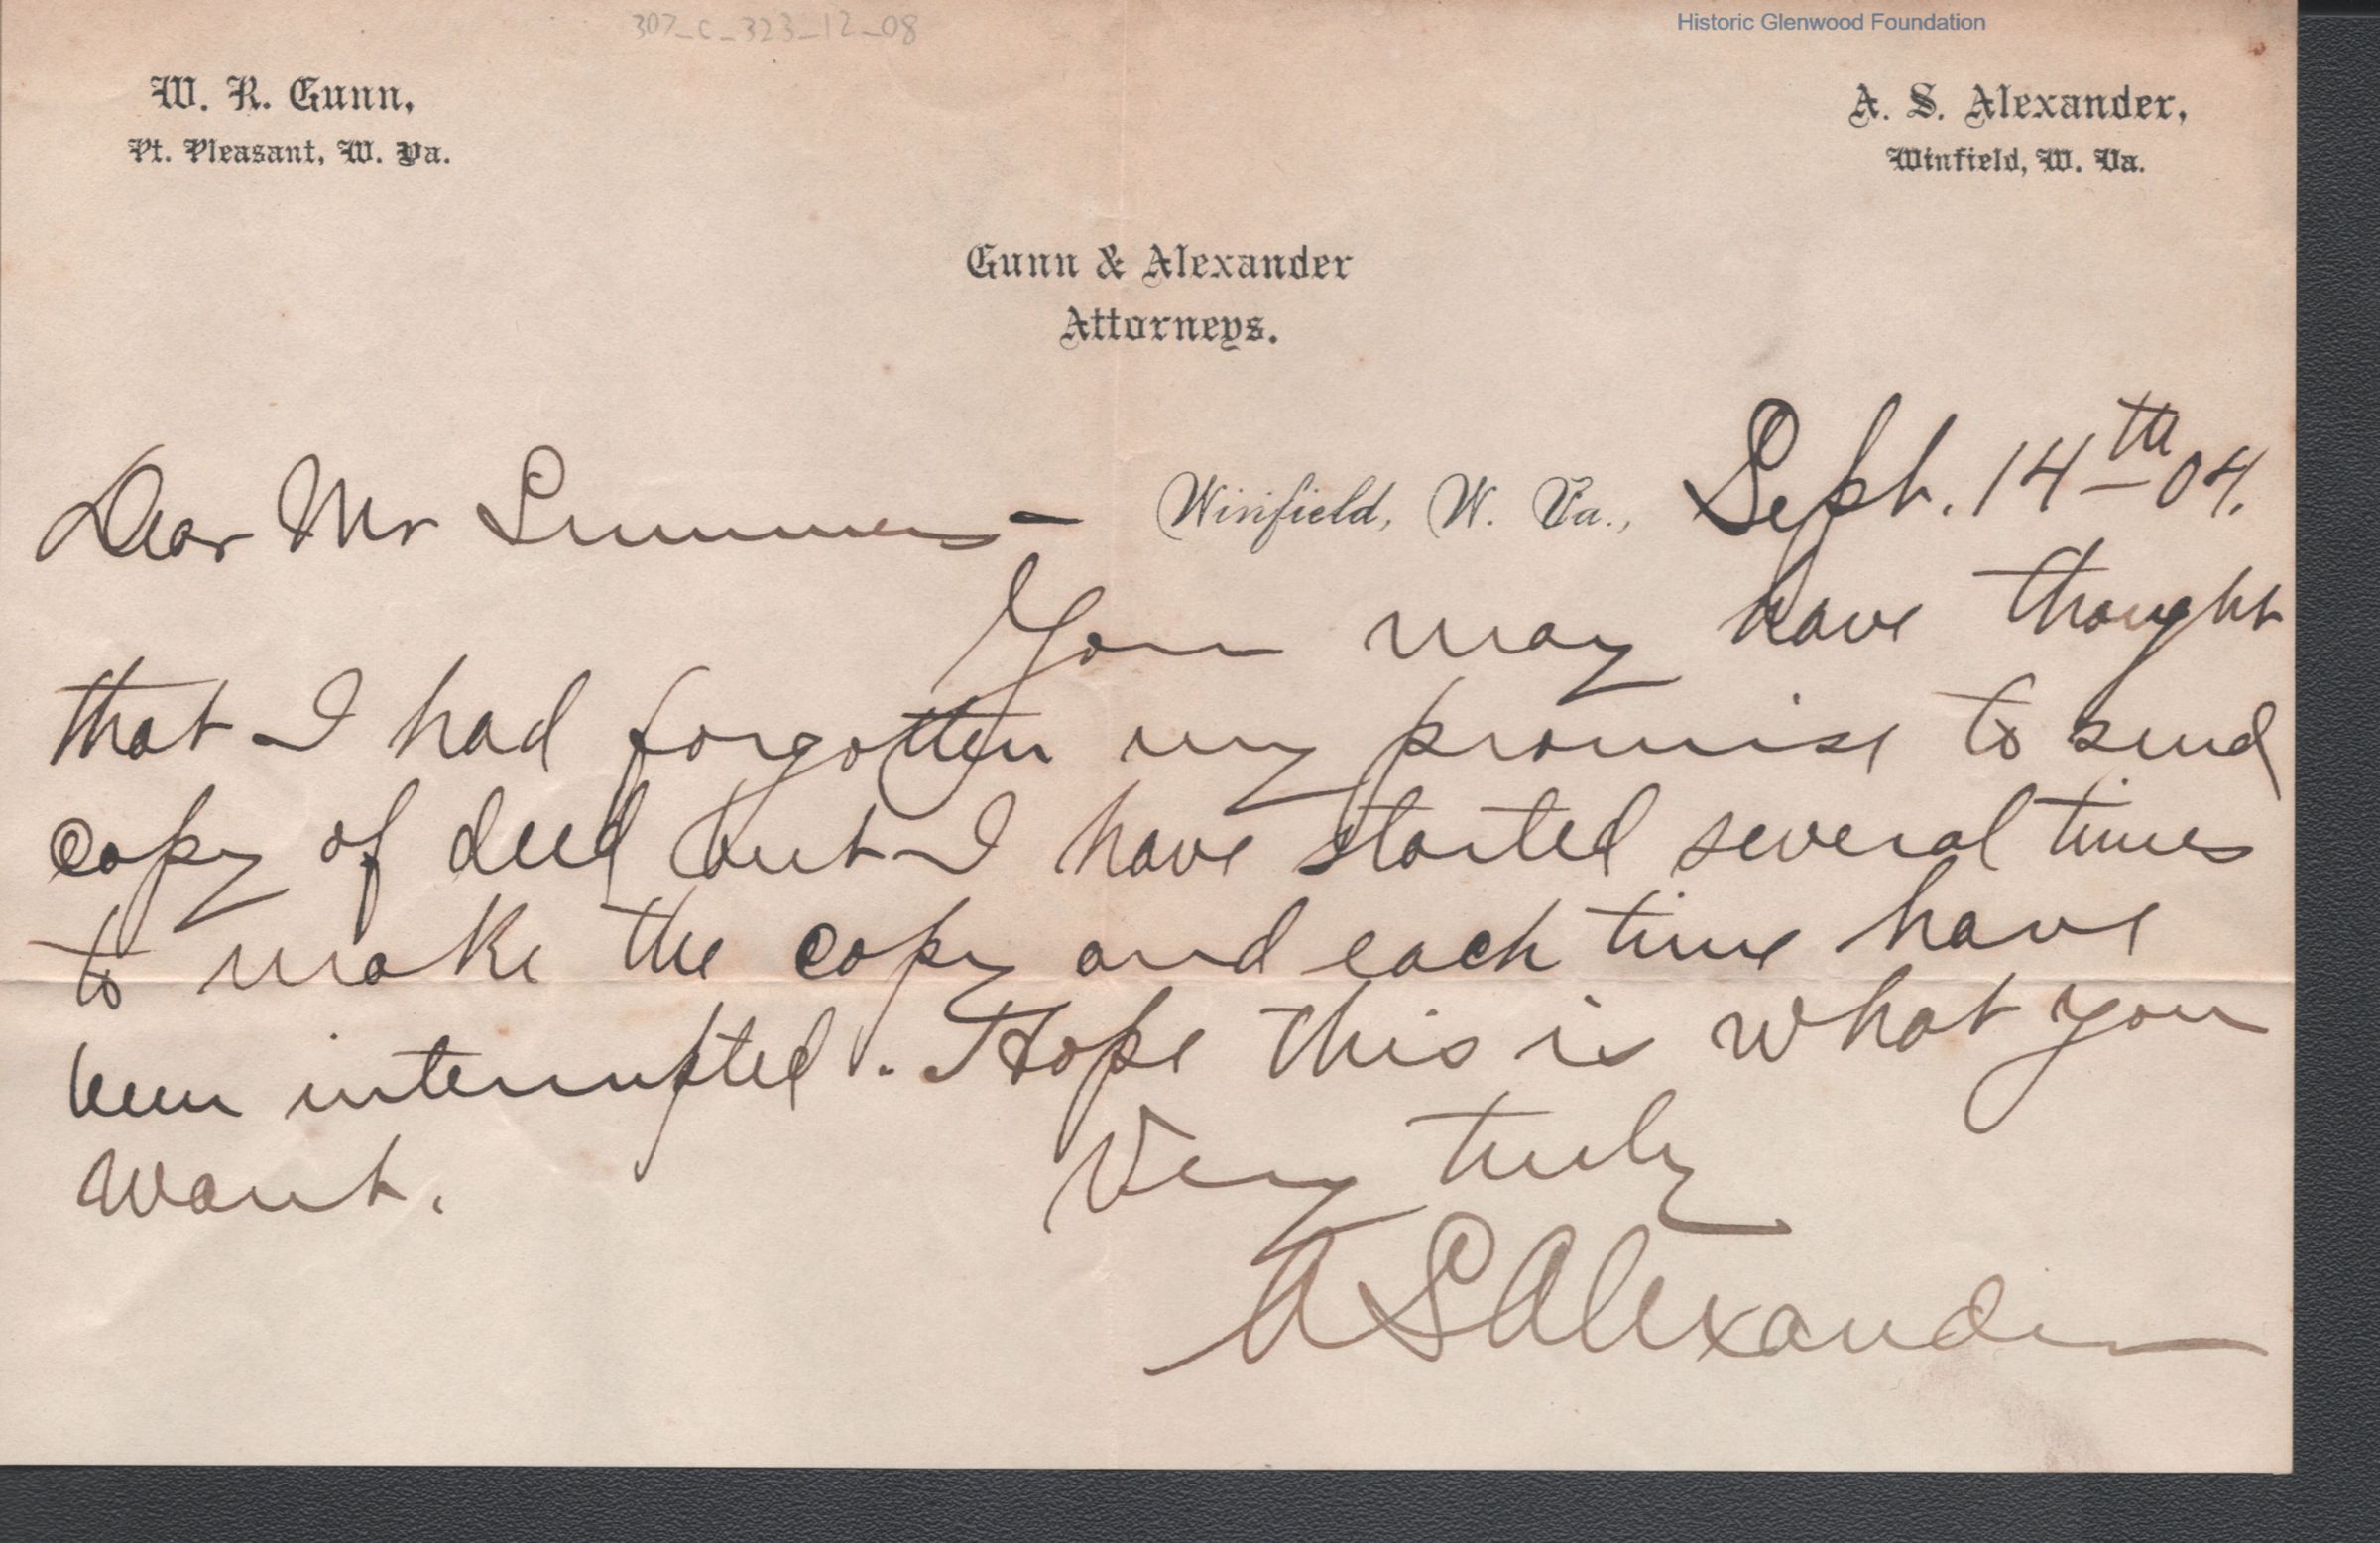 307_C_323_12_08
Historic Glenwood Foundation
W. R. Gunn,
Pt. Pleasant, W. Va.
A. S. Alexander,
Winfield, W. Va.
Gunn & Alexander
Attorneys.
Winfield, W. Va., Sept. 14th 04.
Dear Mr Summers -
You may have thought
that I had forgotten my promise to send
copy of deed but I have started several times
to make the copy and each time have
been interrupted. Hope this is what you
want.
Very truly
A S Alexander